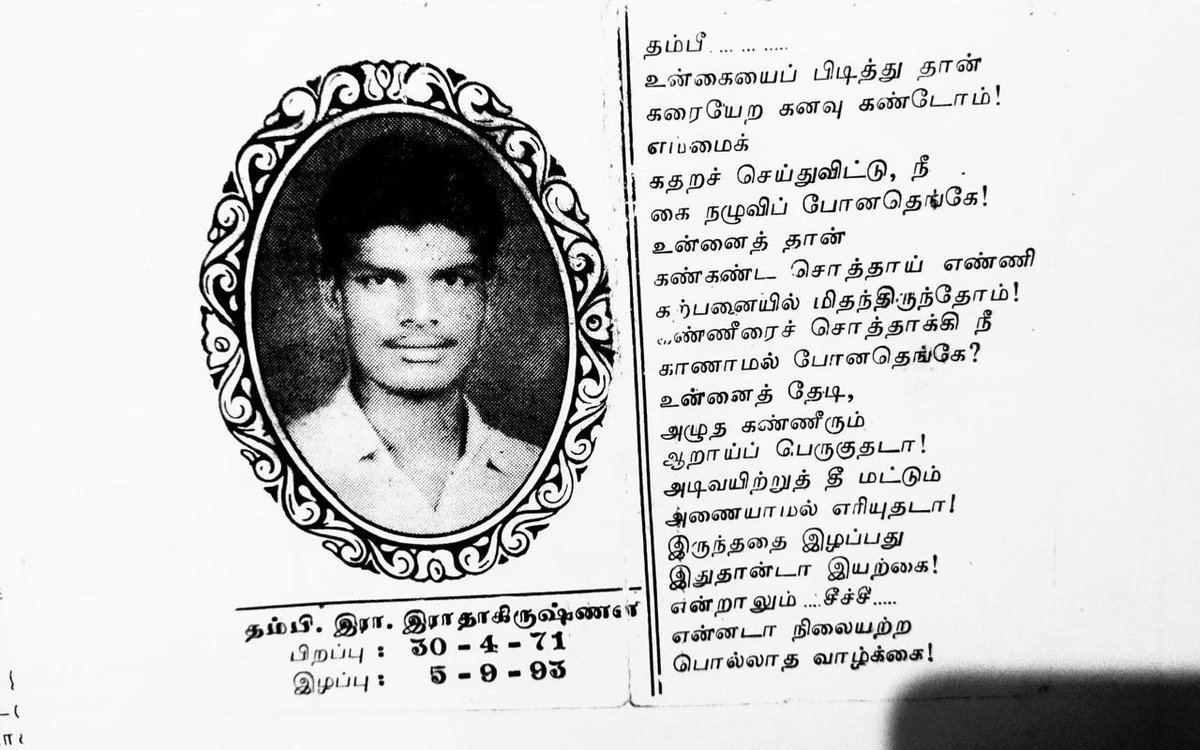 தம்பி. இரா. இராதாகிருஷ்ணன்
பிறப்பு : 30 - 4 - 71
இழப்பு : 5 - 9 - 93
தம்பீ .... ... .....
உன்கையைப் பிடித்து தான்
கரையேற கனவு கண்டோம்!
எம்மைக்
கதறச் செய்துவிட்டு, நீ
கை நழுவிப் போனதெங்கே!
உன்னைத் தான்
கண்கண்ட சொத்தாய் எண்ணி
கற்பனையில் மிதந்திருந்தோம்!
கண்ணீரைச் சொத்தாக்கி நீ
காணாமல் போனதெங்கே?
உன்னைத் தேடி,
அழுத கண்ணீரும்
ஆறாய்ப் பெருகுதடா!
அடிவயிற்றுத் தீ மட்டும்
அணையாமல் எரியுதடா!
இருந்ததை இழப்பது
இதுதான்டா இயற்கை!
என்றாலும் .... சீச்சீ.....
என்னடா நிலையற்ற
பொல்லாத வாழ்க்கை!